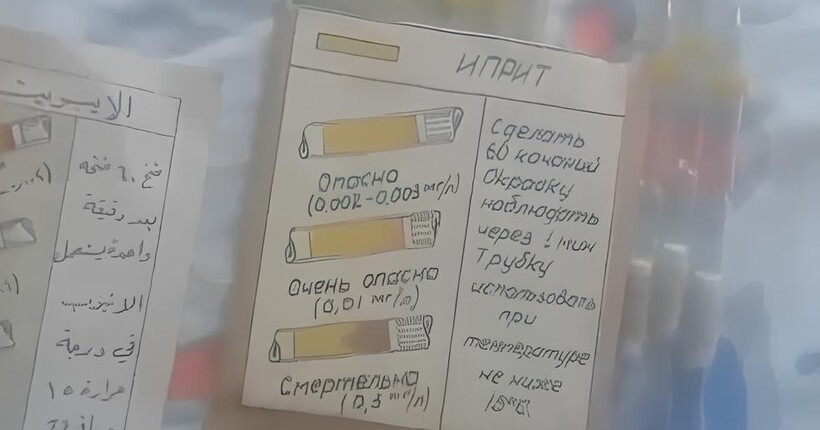 ИПРИТ
Опасно
(0.002-0.003 мг/л)
Очень опасно
(0,01 мг/л)
Смертельно
(0,5 мг/л)
Сделать
60 качаний
Окраску
наблюдать
через 1 мин
Трубку
использовать
при
температуре
не ниже
15°C
الايبريت
بعد دقيقة
واحدة يستعمل
في درجة
حرارة ١٥